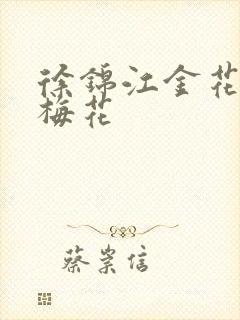 徐錦江金花
梅花
蔡崇信